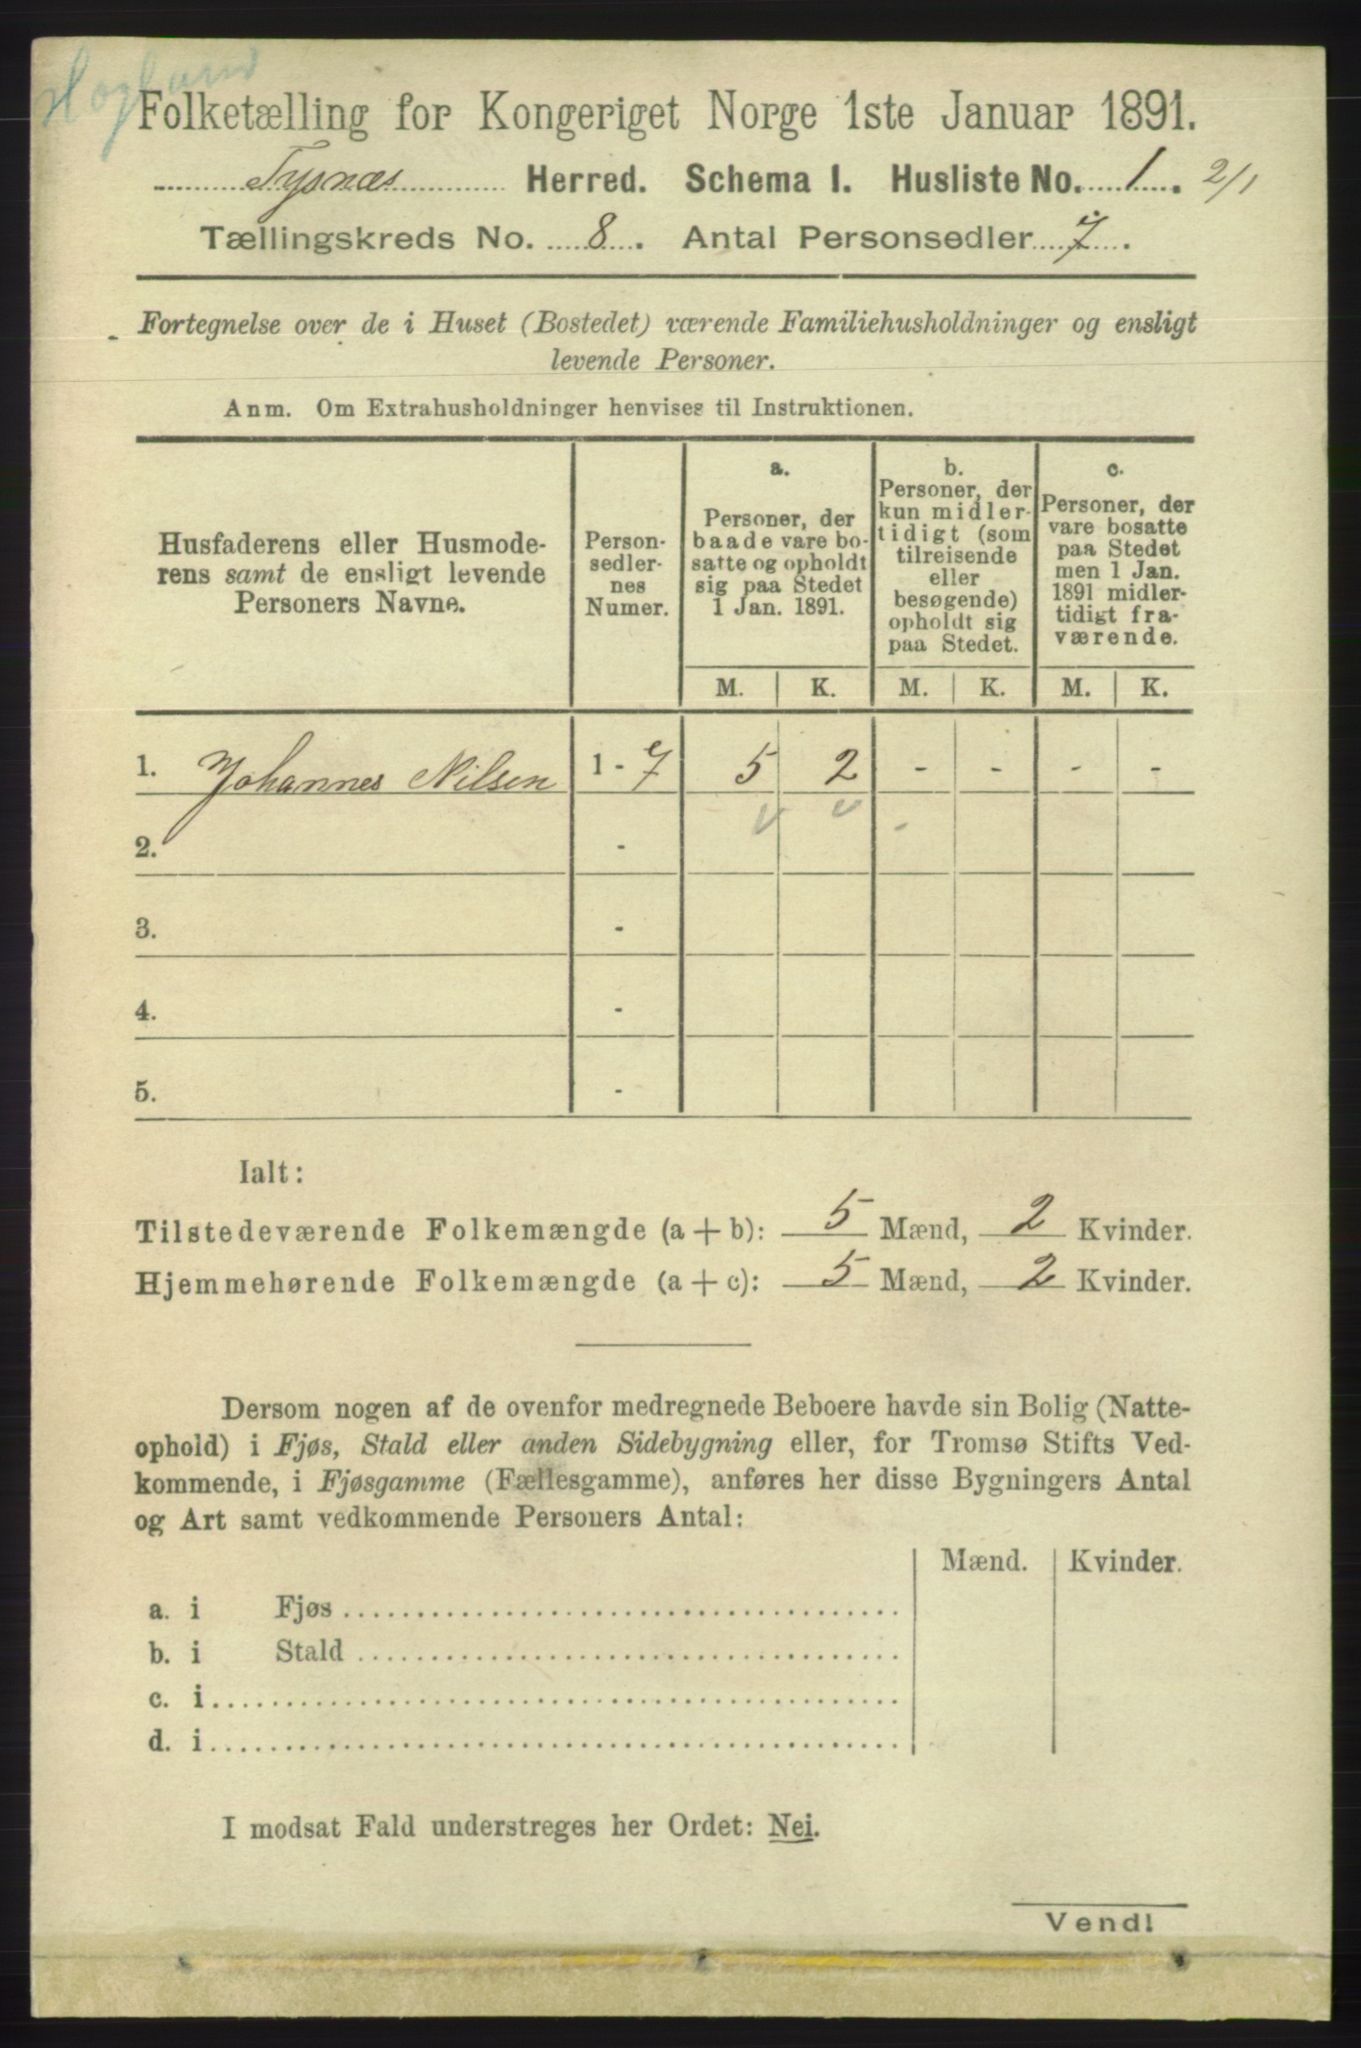 Hogland
Folketælling for Kongeriget Norge 1ste Januar 1891.
Tysnæs Herred. Schema I. Husliste No. 1. 2/1
Tællingskreds No. 8. Antal Personsedler 7.
Fortegnelse over de i Huset (Bostedet) værende Familiehusholdninger og ensligt
levende Personer.
Anm. Om Extrahusholdninger henvises til Instruktionen.
Husfaderens eller Husmode-
rens samt de ensligt levende
Personers Navne.
Person-
sedler-
nes
Numer.
a.
Personer, der
baade vare bo-
satte og opholdt
sig paa Stedet
1 Jan. 1891.
b.
Personer, der
kun midler-
tidigt (som
tilreisende
eller
besøgende)
opholdt sig
paa Stedet.
c.
Personer, der
vare bosatte
paa Stedet
men 1 Jan.
1891 midler-
tidigt fra-
værende.
M. K. M. K. M. K.
1. Johannes Nilsen 1 - 7 5 2 - - - -
2. -
3. -
4. -
5. -
Ialt:
Tilstedeværende Folkemængde (a + b): 5 Mænd, 2 Kvinder.
Hjemmehørende Folkemængde (a + c): 5 Mænd, 2 Kvinder.
Dersom nogen af de ovenfor medregnede Beboere havde sin Bolig (Natte-
ophold) i Fjøs, Stald eller anden Sidebygning eller, for Tromsø Stifts Ved-
kommende, i Fjøsgamme (Fællesgamme), anføres her disse Bygningers Antal
og Art samt vedkommende Personers Antal:
Mænd. Kvinder.
a. i Fjøs
b. i Stald
c. i
d. i
I modsat Fald understreges her Ordet: Nei.
Vend!